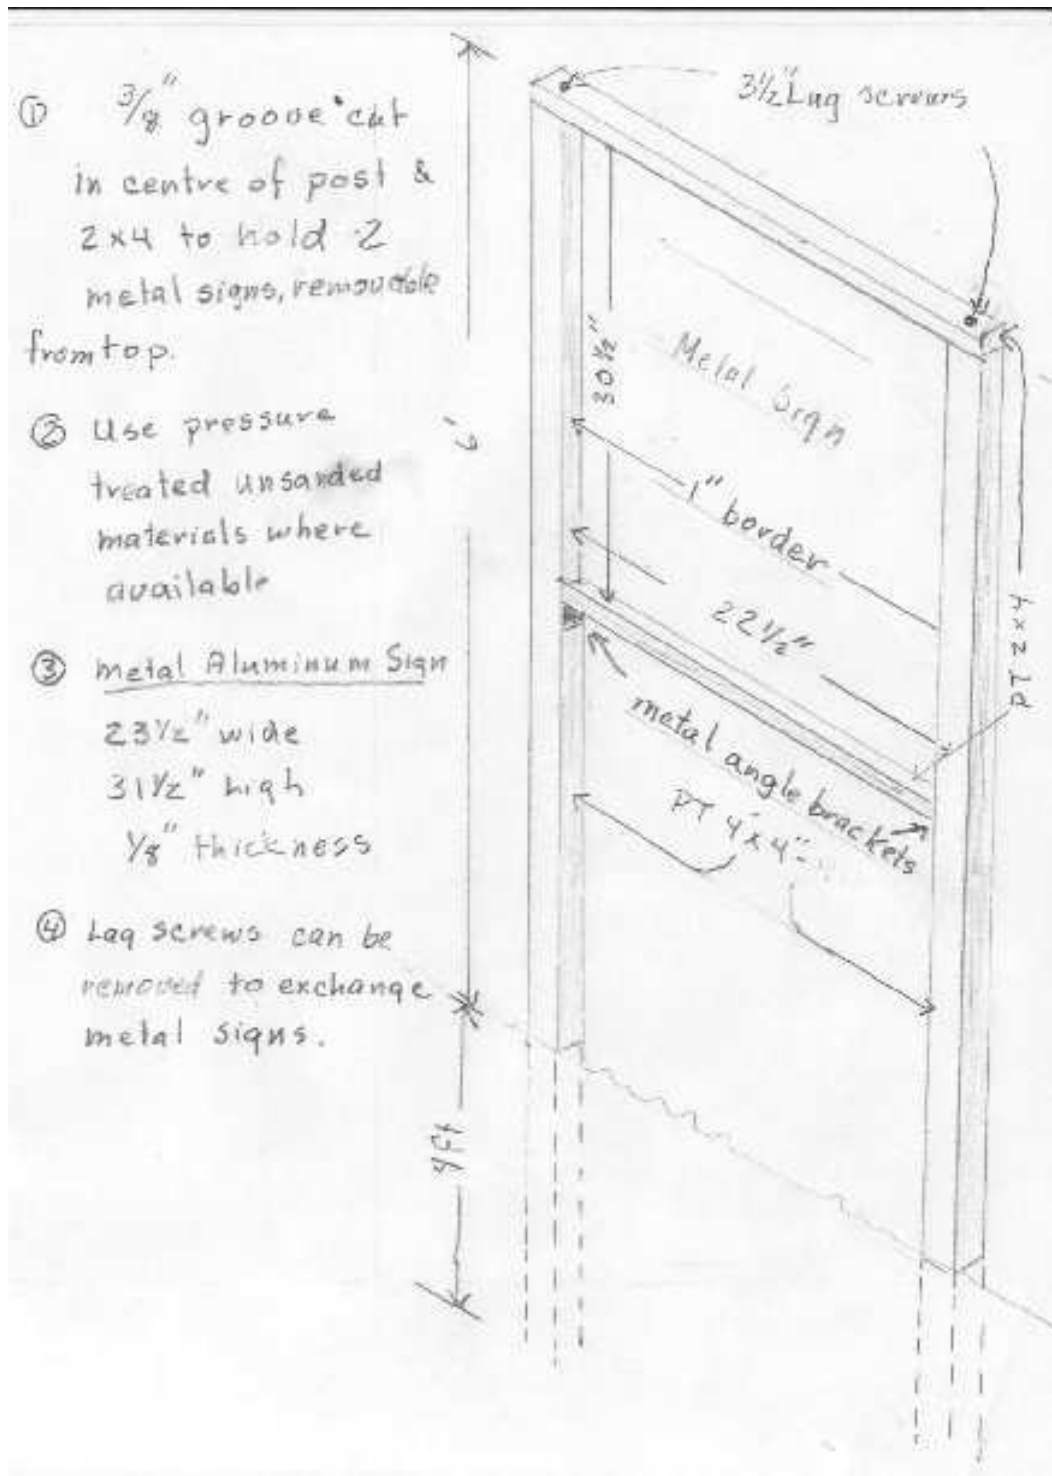 ① 3/8" groove cut
in centre of post &
2x4 to hold 2
metal signs, removable
from top.
② Use pressure
treated unsanded
materials where
available
③ Metal Aluminum Sign
23 1/2" wide
31 1/2" high
1/8" thickness
④ Lag screws can be
removed to exchange
metal signs.
3 1/2" Lag screws
30 1/2"
Metal Sign
1" border
22 1/2"
PT 2x4
metal angle brackets
PT 4"x4"
4Ft